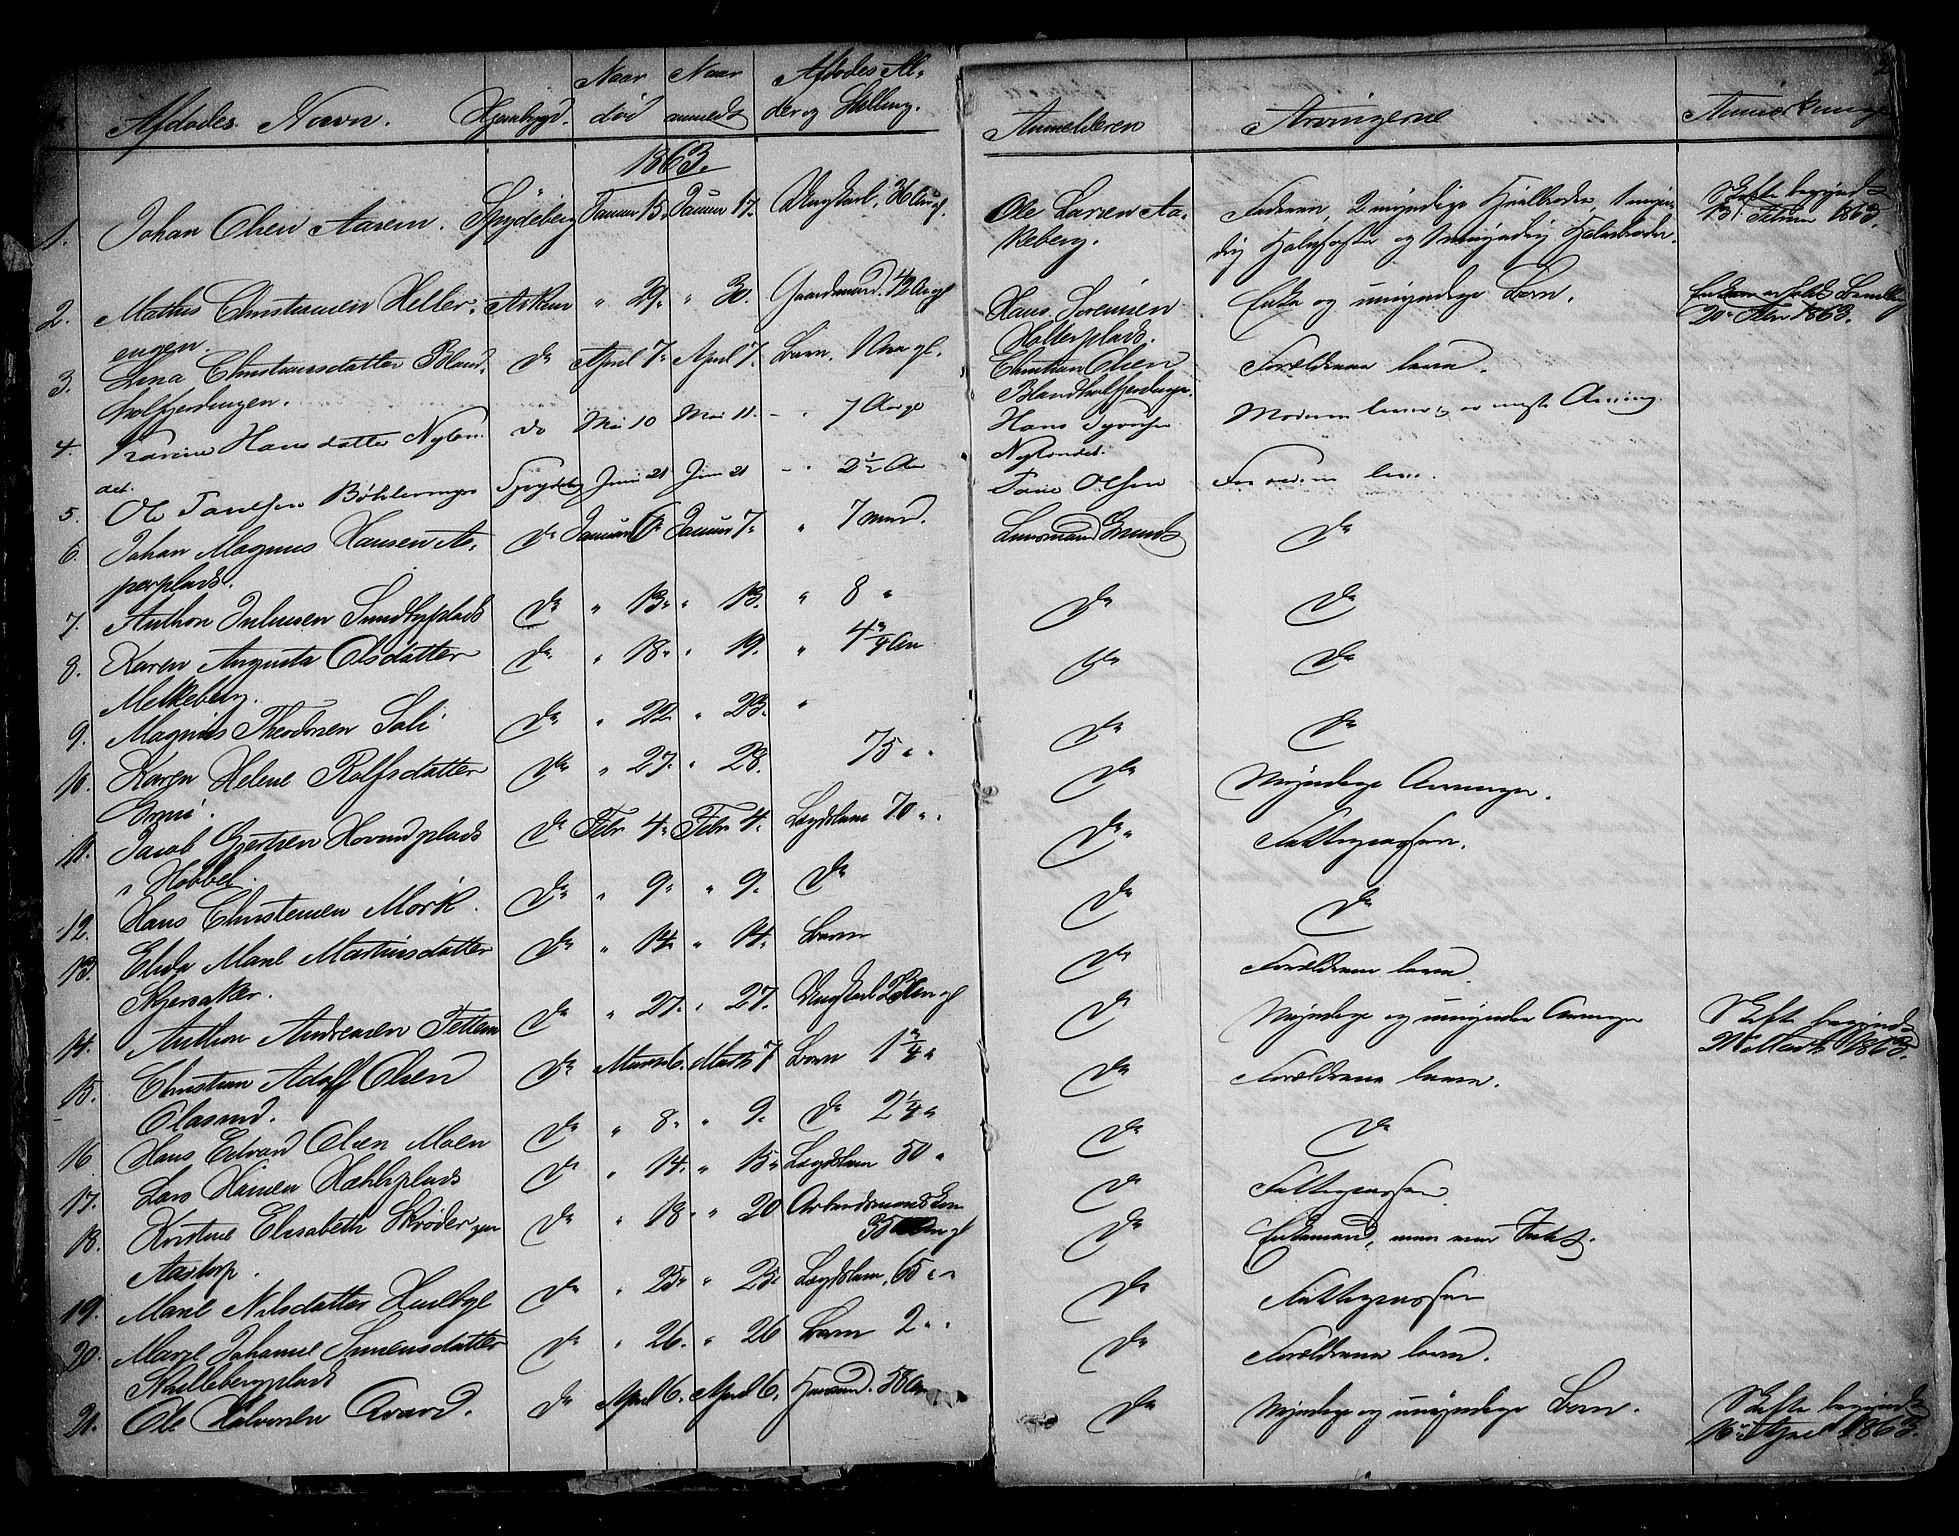 2
Afdødes Navn. Hjembygd. Naar død Naar anmeldt Afdødes Alder og Stilling. Anmelderen Arvingerne Anmærkninger
1863.
1. Johan Olsen Aasem. Spydeberg Januar 15. Januar 17. Ungkarl, 36 Aar gl. Ole Larsen Aa- Faderen, 2 myndige Helbrødre, 1 myn- Skifte begyndt
keberg. dig Halvsøster og 1 myndig Halvbroder. 13. Februar 1863.
2. Mathis Christiansen Heller- Askim " 29. " 30. Gaardmand. 42 Aar gl Hans Sørensen Enke og umyndige Børn. Enken erholdt Bevilling
engen. Holterplads. 20. Febr 1863.
3. Lina Christiansdatter Bland- do April 7. April 7. Barn. 1 Aar gl. Christian Olsen Forældrene leve.
holfjerdingen. Blandholfjerdingen
4. Karine Hansdatter Nylen- do Mai 10 Mai 11. - " 7 Aar gl Hans Moderen lever og er næste Arving.
det. Nylendet.
5. Ole Paulsen Spydeberg Juni 21 Juni 21 - " 2½ Aar Olsen Forældrene leve.
6. Johan Magnus Hansen As- do Januar 6. Januar 7. " 7 mnd. Lensmand Grundt do
perplads.
7. Anthon Juliusen Sundbyplads do " 13. " 13. " 8 " do do
8. Karen Augusta Olsdatter do " 18. " 19. " 4¾ Aar do do
Melkeberg.
9. Magnus Theodorsen Soli do " 22. " 23. " do do
10. Karen Helene Rolfsdatter do " 27. " 28. 75 " " do Myndige Arvinger.
11. Jacob Gjertsen Hovindplads do Febr. 4. Febr 4. Lægdslem 70 " " do Fattigcassen.
" Hobbel.
12. Hans Christensen Mørk. do " 9. " 9. do do do
13. Elida Marie Martinsdatter do " 14. " 14. Barn do Forældrene leve.
Skjersaker.
14. Anthon Andreasen Fettem do " 27. " 27. Ungkarl 23 Aar gl do Myndige og umyndige Arvinger Skifte begyndt
Marts 1863.
15. Christian Adolf Olsen do Marts 6. Marts 7 Barn 1¾ " do Forældrene leve.
Olasrud.
16 Hans Edvard Olsen Moen do " 8. " 9. do 2¼ " do do
17. Lars Hansen Hæhliplads do " 14. " 15. Lægdslem 50 " do Fattigcassen
18. Kirstine Elisabeth Skrøder do " 18 " 20 Arbeidsmands Kone do Enkemand, men
Aastorp. 35 Aar gl
19. Marie Nilsdatter Huseby do " 25. " 25. Lægdslem, 65 " " do Fattigcassen
20. Maren Johanne Simensdatter do " 26. " 26 Barn 2 " " do Forældrene leve.
Kullebergplads
21. Ole Halvorsen Qvard. do April 6. April 6. Huusmd. 58 Aar do Myndige og umyndige Børn. Skifte begyndt
16. April 1863.